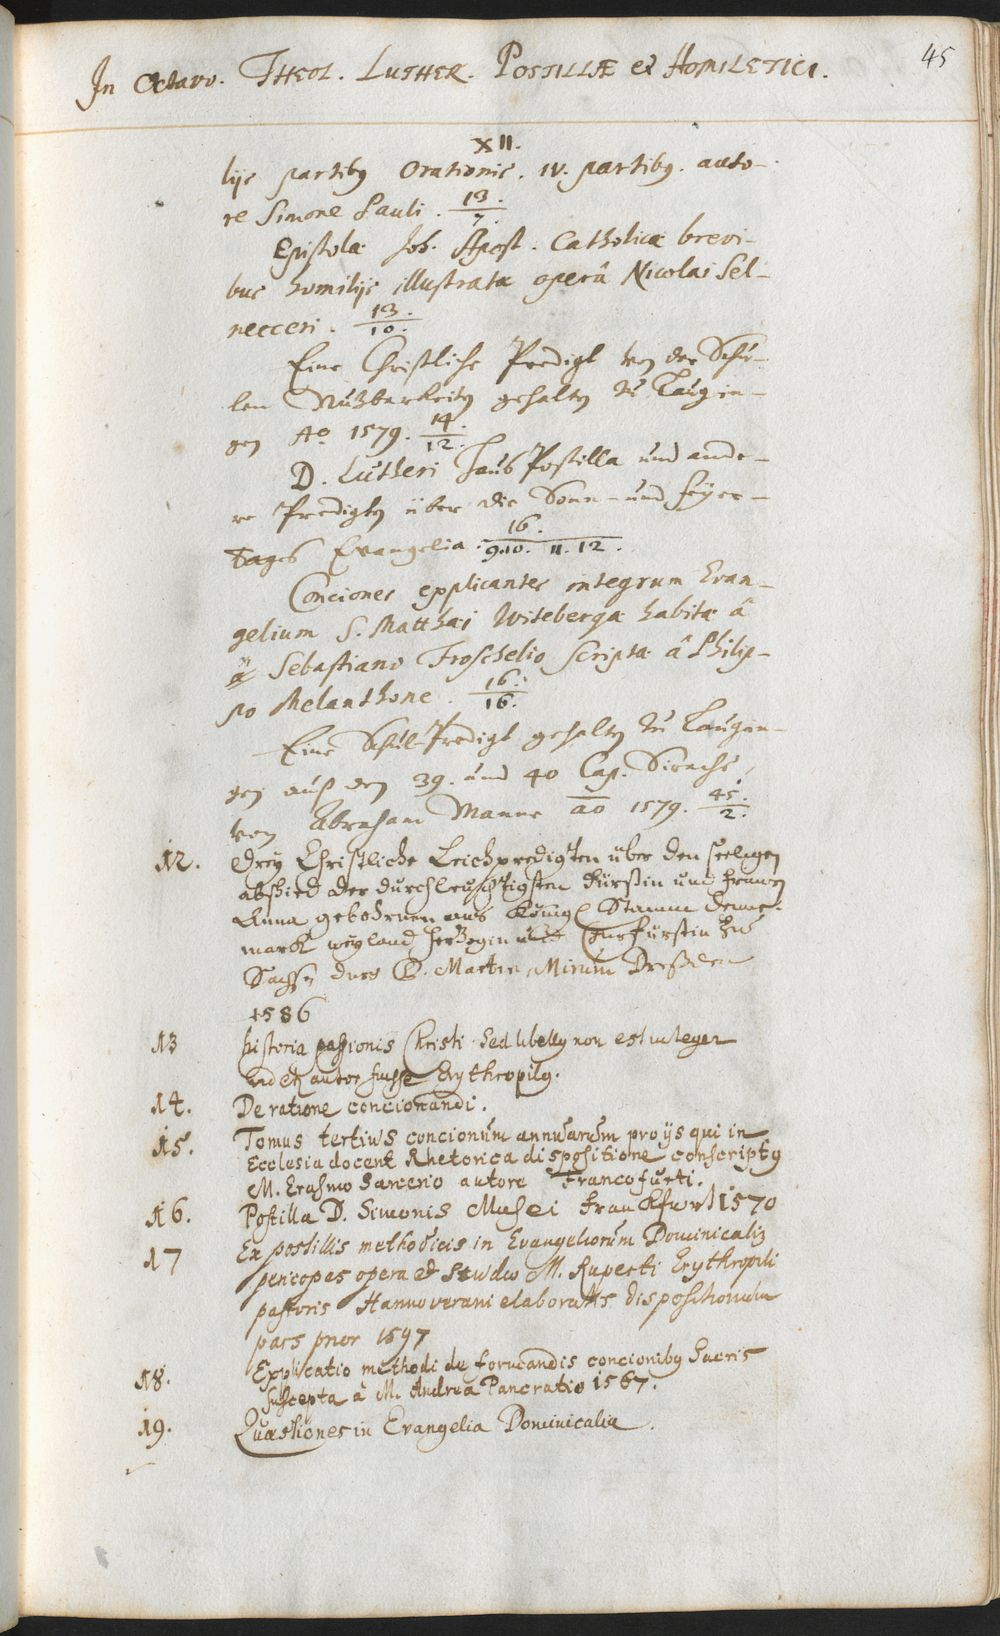 45
In Octavo. THEOL. LUTHER. POSTILLÆ et HOMILETICI.
XII.
lijs partibꝫ Orationis. IV. partibꝫ. auto-
re Simone Pauli. 13./7.
Epistola Joh. Apost. Catholica brevi-
bus homilijs illustrata operâ Nicolai Sel-
necceri. 13./10.
Eine Christliche Predigt von der Schu-
len Nutzbarkeitꝫ gehaltꝫ zu Laugin-
gen Aº 1579. 14./12.
D. Lutheri Haus Postilla und ande-
re Predigtꝫ über die Sonn- und Feyer-
tages Evangelia. 16./9.10. 11. 12.
Conciones explicantes integrum Evan-
gelium S. Matthæi Witebergæ habitæ â
Sebastiano Froschelio scriptæ â Philip-
po Melanthone. 16./16.
Eine Schul-Predigt gehaltꝫ zu Laugin-
gen auß den 39. und 40 Cap. Sirachs,
von Abraham Manne ao 1579. 45./2.
12. Drey Christliche Leichpredigten über den seeligen
abshied der durchleuchtigsten Fürstin und frawen
Anna gebohrnen aus Königl Stamm Denne-
marck weyland herzogin und Churfürstin zu
Sachsn durch D. Martin Mirum Dreßden
1586
13 historia passionis Christi sed libellꝫ non est integer
videt autor fuisse Erythropilꝫ.
14. De ratione concionandi.
15. Tomus tertius concionum annuarum pro ijs qui in
Ecclesia docent Rhetorica dispositione conscriptꝫ
M. Erasmo Sarcerio autore Francofurti.
16. Postilla D. Simonis Musei Franckfurt 1570
17 Ex postillis methodicis in Evangeliorum Dominicaliꝫ
pericopas opera et studio M. Ruperti Erythropili
pastoris Hannoverani elaboratis dispositionum
pars prior 1597
18. Explicatio methodi de formandis concionibꝫ Sacris
suscepta â M. Andrea Pancratio 1567.
19. Quæstiones in Evangelia Dominicalia.